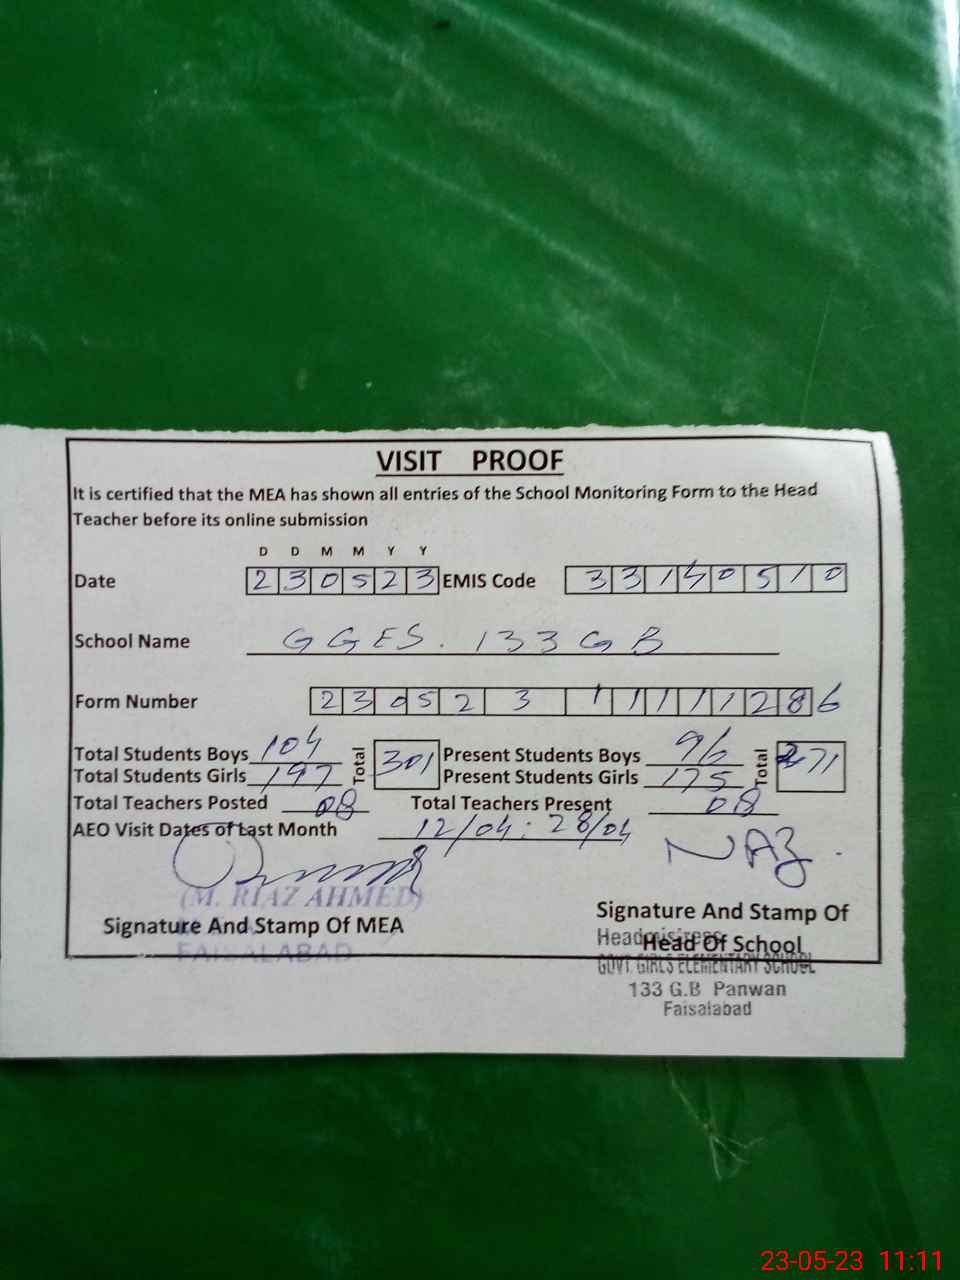 VISIT PROOF
It is certified that the MEA has shown all entries of the School Monitoring Form to the Head
Teacher before its online submission
D D M M Y Y
Date 230523 EMIS Code 33140510
School Name GGES. 133 GB
Form Number 230523 11111286
Total Students Boys 104 Total 301 Present Students Boys 96 Total 271
Total Students Girls 197 Present Students Girls 175
Total Teachers Posted 08 Total Teachers Present 08
AEO Visit Dates of Last Month 12/04: 28/04
NAZ.
(M. RIAZ AHMED)
Signature And Stamp Of MEA
FAISALABAD
Signature And Stamp Of
Head Of School
Headmistress
GOVT. GIRLS ELEMENTARY SCHOOL
133 G.B Panwan
Faisalabad
23-05-23 11:11